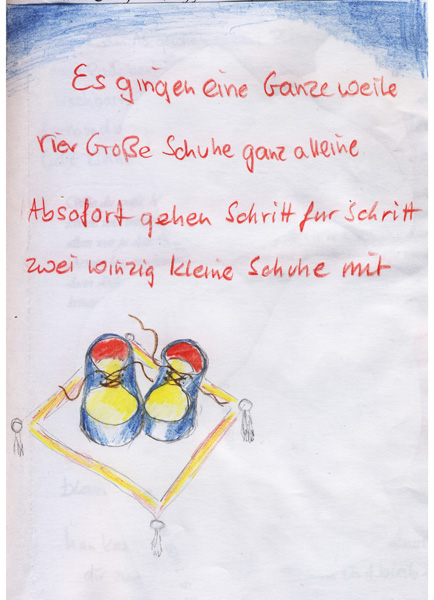 Es gingen eine Ganze weile
vier Große Schuhe ganz alleine
Absofort gehen Schritt fur schritt
zwei winzig kleine Schuhe mit